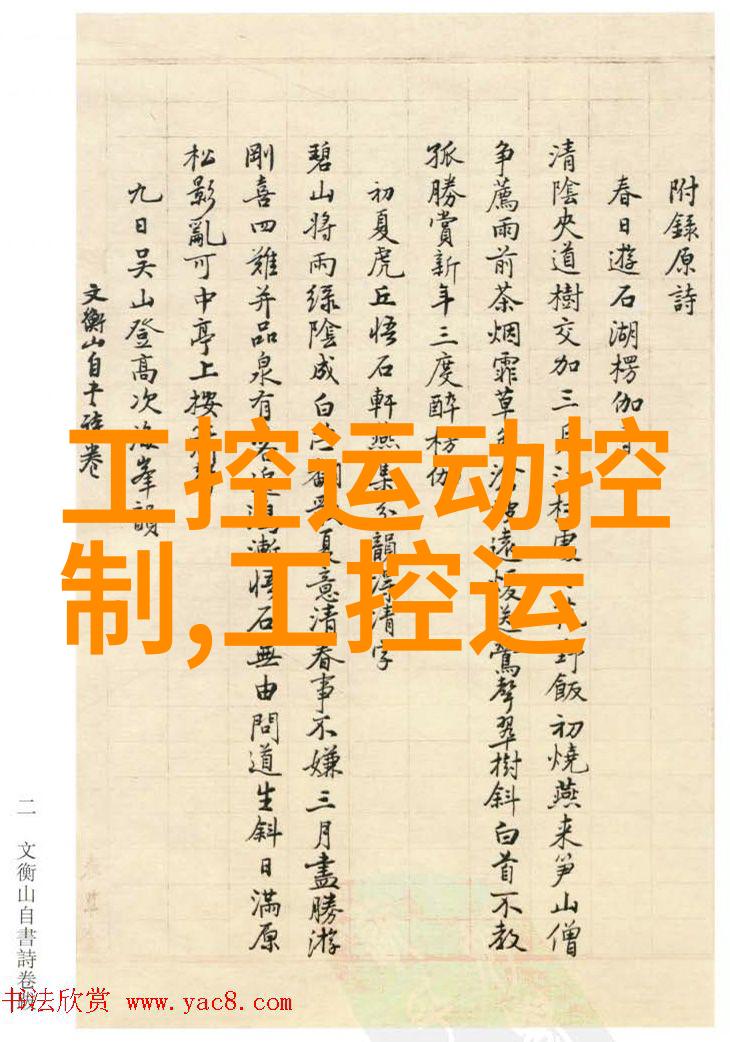 附錄原詩
春日遊石湖楞伽
清陰夾道樹交加三月野飯初燒燕来笋山僧
争薦雨前茶烟霏草遠送鶯聲翠樹斜白首不教
孤勝賞新年三度醉楞伽
初夏虎丘悟石軒燕集分韻得清字
碧山将雨綠陰成白夏意清春事不嫌三月盡勝游
剛喜四難并品泉有悟石無由問道生斜日滿原
松影亂可中亭上按
九日吴山登高次海峯韻
文衡山自书诗卷
二 文衡山自書詩卷跋
工控运动控
制,工控运
书法欣赏 www.yac8.com